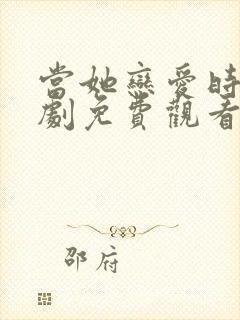 當她戀愛時
劇免費觀看
邵府